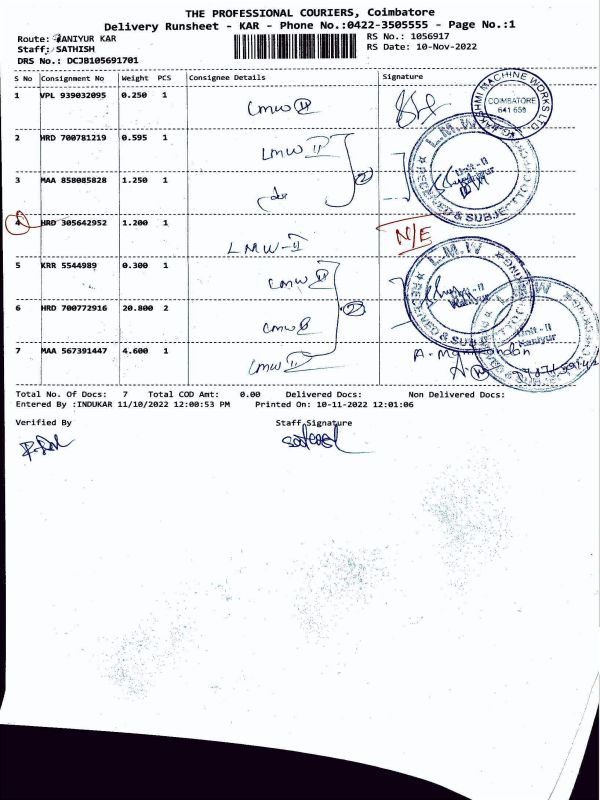 THE PROFESSIONAL COURIERS, Coimbatore
Delivery Runsheet - KAR - Phone No.:0422-3505555 - Page No.:1
Route: KANIYUR KAR RS No.: 1056917
Staff: SATHISH RS Date: 10-Nov-2022
DRS No.: DCJB105691701
S No Consignment No Weight PCS Consignee Details Signature
1 VPL 939032095 0.250 1 LMW II
LAKSHMI MACHINE WORKS LTD
COIMBATORE
641 659
2 HRD 700781219 0.595 1 LMW II
L.M.W
Unit-II
Kaniyur
RECEIVED & SUBJECT TO CHECKING
3 MAA 858085828 1.250 1 do 2
4 HRD 305642952 1.200 1 LMW-II N/E
5 KRR 5544989 0.300 1 LMW II
L.M.W
Unit-II
Kaniyur
RECEIVED & SUBJECT TO CHECKING
6 HRD 700772916 20.800 2 LMW II 2
L.M.W
Unit-II
Kaniyur
7 MAA 567391447 4.600 1 LMW II A. Manikandan
Total No. Of Docs: 7 Total COD Amt: 0.00 Delivered Docs: Non Delivered Docs:
Entered By :INDUKAR 11/10/2022 12:00:53 PM Printed On: 10-11-2022 12:01:06
Verified By Staff Signature